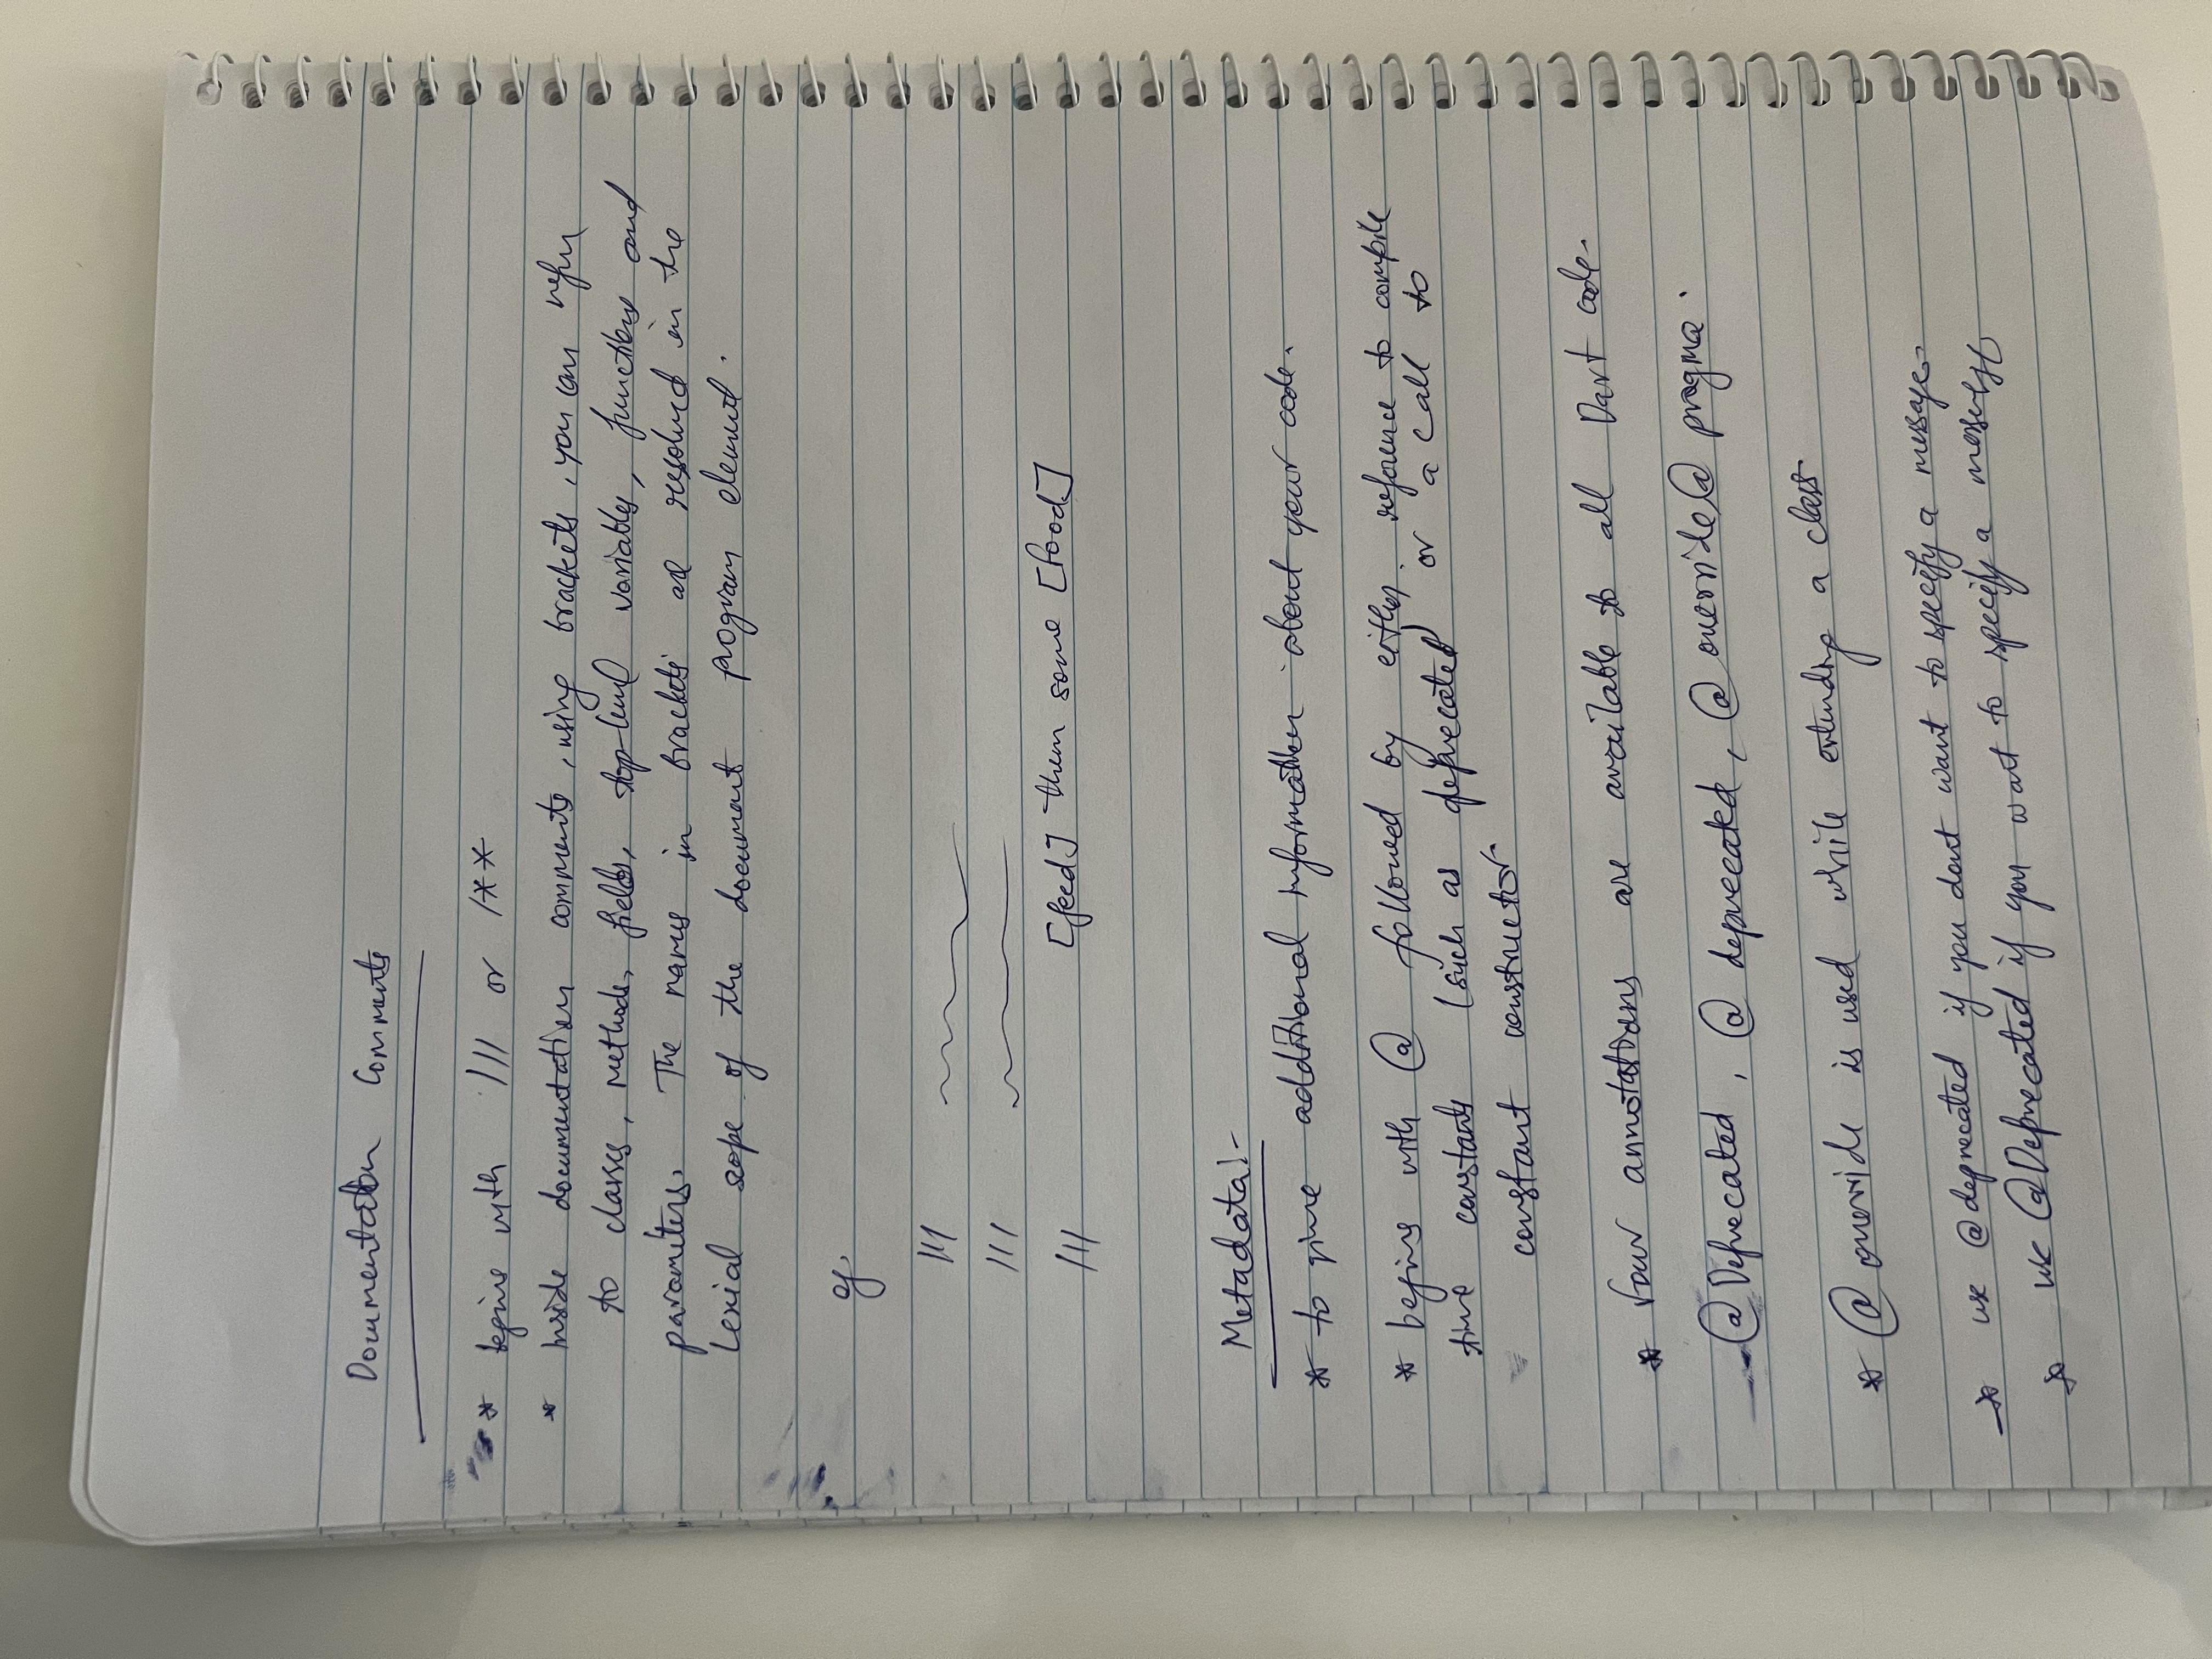 Documentation Comments
* begins with /// or /**
* Inside documentation comments, using brackets, you can refer
to classes, methods, fields, top-level variables, functions and
parameters. The names in brackets are resolved in the
Lexial scope of the document program element.
eg.
///
///
/// [feed] them some [food]
Metadata:-
* to give additional information about your code.
* begins with @ followed by either reference to compile
time constants (such as deprecated) or a call to
constant constructor
* four annotations are available to all Dart code.
@Deprecated, @deprecated, @override @pragma.
* @override is used while extending a class
* use @deprecated if you dont want to specify a message.
* use @Deprecated if you want to specify a message